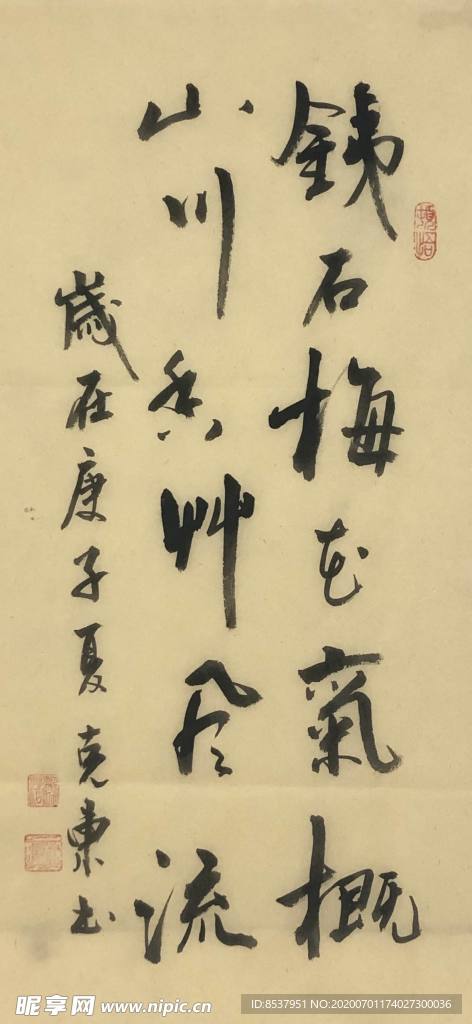 銕石梅花氣概
山川香艸風流
歲在庚子夏克東书
昵享网 www.nipic.cn
ID:8537951 NO:20200701174027300036